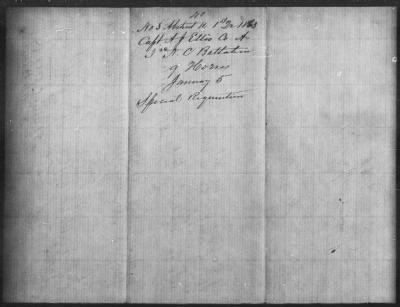 40
No 3 Abstract N 1st Qr 1863
Capt A J Ellis Co A
3rd N. C Battalion
9 Horses
January 5
Special Requisition